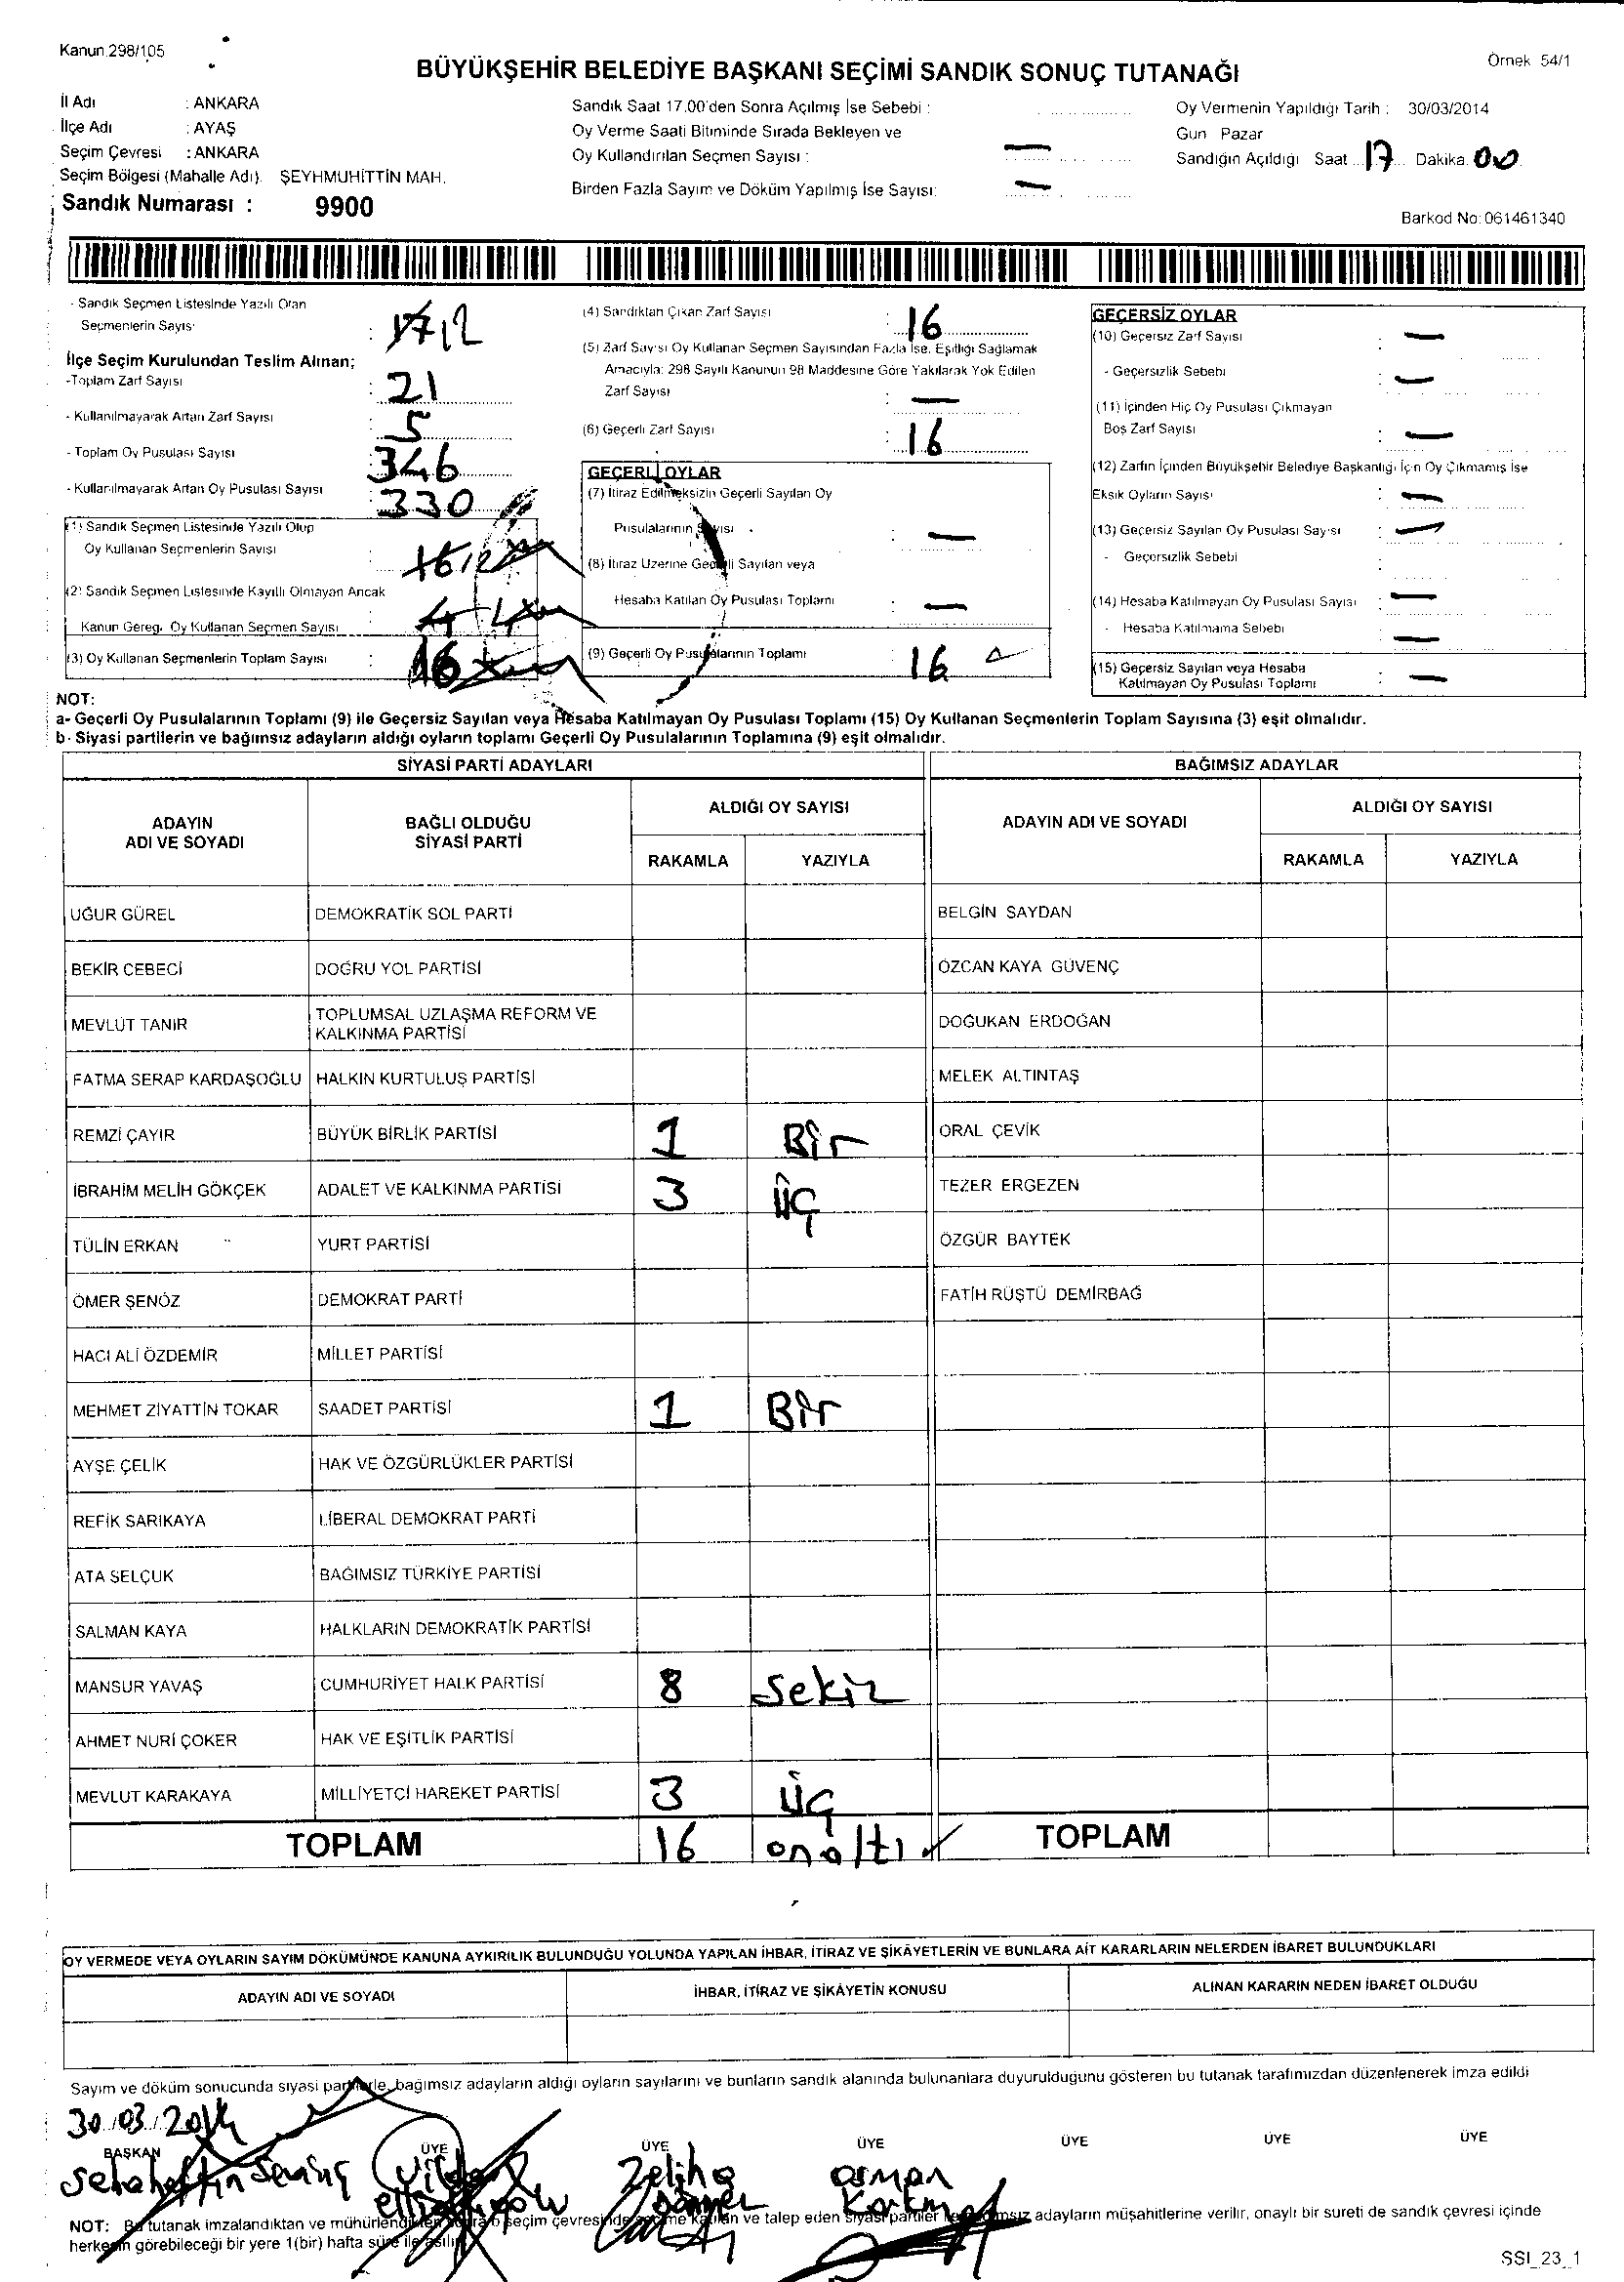 Kanun.298/105
Örnek 54/1
BÜYÜKŞEHİR BELEDİYE BAŞKANI SEÇİMİ SANDIK SONUÇ TUTANAĞI
İl Adı : ANKARA
İlçe Adı : AYAŞ
Seçim Çevresi : ANKARA
Seçim Bölgesi (Mahalle Adı). ŞEYHMUHİTTİN MAH.
Sandık Numarası : 9900
Sandık Saat 17.00'den Sonra Açılmış İse Sebebi :
Oy Verme Saati Bitiminde Sırada Bekleyen ve
Oy Kullandırılan Seçmen Sayısı : —
Birden Fazla Sayım ve Döküm Yapılmış İse Sayısı: —
Oy Vermenin Yapıldığı Tarih : 30/03/2014
Gün Pazar
Sandığın Açıldığı Saat 17 Dakika. 00
Barkod No: 061461340
- Sandık Seçmen Listesinde Yazılı Olan
Seçmenlerin Sayısı : 12
İlçe Seçim Kurulundan Teslim Alınan;
-Toplam Zarf Sayısı : 21
- Kullanılmayarak Artan Zarf Sayısı : 5
- Toplam Oy Pusulası Sayısı : 346
- Kullanılmayarak Artan Oy Pusulası Sayısı : 330
(1) Sandık Seçmen Listesinde Yazılı Olup
Oy Kullanan Seçmenlerin Sayısı : 16 12
(2) Sandık Seçmen Listesinde Kayıtlı Olmayan Ancak
Kanun Gereği Oy Kullanan Seçmen Sayısı 4
(3) Oy Kullanan Seçmenlerin Toplam Sayısı : 16
(4) Sandıktan Çıkan Zarf Sayısı : 16
(5) Zarf Sayısı Oy Kullanan Seçmen Sayısından Fazla İse, Eşitliği Sağlamak
Amacıyla: 298 Sayılı Kanunun 98 Maddesine Göre Yakılarak Yok Edilen
Zarf Sayısı : —
(6) Geçerli Zarf Sayısı : 16
GEÇERLİ OYLAR
(7) İtiraz Edilmeksizin Geçerli Sayılan Oy
Pusulalarının Sayısı : —
(8) İtiraz Üzerine Geçerli Sayılan veya
Hesaba Katılan Oy Pusulası Toplamı : —
(9) Geçerli Oy Pusulalarının Toplamı : 16
GEÇERSİZ OYLAR
(10) Geçersiz Zarf Sayısı : —
- Geçersizlik Sebebi : —
(11) İçinden Hiç Oy Pusulası Çıkmayan
Boş Zarf Sayısı : —
(12) Zarfın İçinden Büyükşehir Belediye Başkanlığı İçin Oy Çıkmamış İse
Eksik Oyların Sayısı : —
(13) Geçersiz Sayılan Oy Pusulası Sayısı : —
- Geçersizlik Sebebi
(14) Hesaba Katılmayan Oy Pusulası Sayısı : —
- Hesaba Katılmama Sebebi : —
(15) Geçersiz Sayılan veya Hesaba
Katılmayan Oy Pusulası Toplamı : —
NOT:
a- Geçerli Oy Pusulalarının Toplamı (9) ile Geçersiz Sayılan veya Hesaba Katılmayan Oy Pusulası Toplamı (15) Oy Kullanan Seçmenlerin Toplam Sayısına (3) eşit olmalıdır.
b- Siyasi partilerin ve bağımsız adayların aldığı oyların toplamı Geçerli Oy Pusulalarının Toplamına (9) eşit olmalıdır.
SİYASİ PARTİ ADAYLARI BAĞIMSIZ ADAYLAR
ADAYIN ADI VE SOYADI BAĞLI OLDUĞU SİYASİ PARTİ ALDIĞI OY SAYISI ADAYIN ADI VE SOYADI ALDIĞI OY SAYISI
RAKAMLA YAZIYLA RAKAMLA YAZIYLA
UĞUR GÜREL DEMOKRATİK SOL PARTİ BELGİN SAYDAN
BEKİR CEBECİ DOĞRU YOL PARTİSİ ÖZCAN KAYA GÜVENÇ
MEVLÜT TANIR TOPLUMSAL UZLAŞMA REFORM VE KALKINMA PARTİSİ DOĞUKAN ERDOĞAN
FATMA SERAP KARDAŞOĞLU HALKIN KURTULUŞ PARTİSİ MELEK ALTINTAŞ
REMZİ ÇAYIR BÜYÜK BİRLİK PARTİSİ 1 Bir ORAL ÇEVİK
İBRAHİM MELİH GÖKÇEK ADALET VE KALKINMA PARTİSİ 3 üç TEZER ERGEZEN
TÜLİN ERKAN YURT PARTİSİ ÖZGÜR BAYTEK
ÖMER ŞENÖZ DEMOKRAT PARTİ FATİH RÜŞTÜ DEMİRBAĞ
HACI ALİ ÖZDEMİR MİLLET PARTİSİ
MEHMET ZİYATTİN TOKAR SAADET PARTİSİ 1 Bir
AYŞE ÇELİK HAK VE ÖZGÜRLÜKLER PARTİSİ
REFİK SARIKAYA LİBERAL DEMOKRAT PARTİ
ATA SELÇUK BAĞIMSIZ TÜRKİYE PARTİSİ
SALMAN KAYA HALKLARIN DEMOKRATİK PARTİSİ
MANSUR YAVAŞ CUMHURİYET HALK PARTİSİ 8 sekiz
AHMET NURİ ÇOKER HAK VE EŞİTLİK PARTİSİ
MEVLUT KARAKAYA MİLLİYETÇİ HAREKET PARTİSİ 3 üç
TOPLAM 16 onaltı TOPLAM
OY VERMEDE VEYA OYLARIN SAYIM DÖKÜMÜNDE KANUNA AYKIRILIK BULUNDUĞU YOLUNDA YAPILAN İHBAR, İTİRAZ VE ŞİKÂYETLERİN VE BUNLARA AİT KARARLARIN NELERDEN İBARET BULUNDUKLARI
ADAYIN ADI VE SOYADI İHBAR, İTİRAZ VE ŞİKÂYETİN KONUSU ALINAN KARARIN NEDEN İBARET OLDUĞU
Sayım ve döküm sonucunda siyasi partilerle, bağımsız adayların aldığı oyların sayılarını ve bunların sandık alanında bulunanlara duyurulduğunu gösteren bu tutanak tarafımızdan düzenlenerek imza edildi
30.03.2014
BAŞKAN ÜYE ÜYE ÜYE ÜYE ÜYE ÜYE
Zeliha osman
NOT: Bu tutanak imzalandıktan ve mühürlendikten sonra o seçim çevresinde seçime katılan ve talep eden siyasi partiler ile bağımsız adayların müşahitlerine verilir, onaylı bir sureti de sandık çevresi içinde
herkesin görebileceği bir yere 1(bir) hafta süre ile asılır.
SSI_23_1